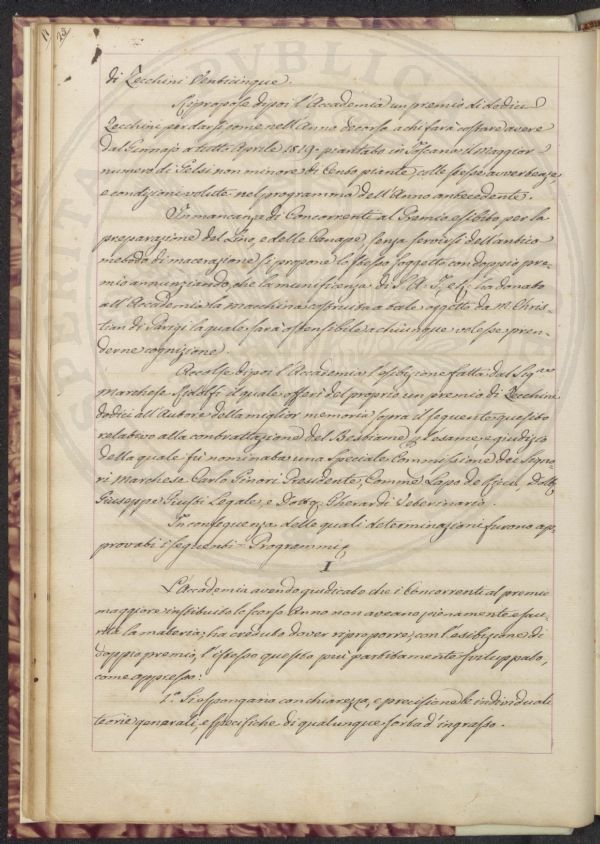 di Zecchini Venticinque.
Ripropose dipoi l'Accademia un premio di dodici
Zecchini per darsi come nell'Anno decorso a chi farà costare avere
dal Gennajo a tutto Aprile 1819. piantato in Toscana il maggior
numero di Gelsi non minore di Cento piante colle stesse avvertenze,
e condizioni volute nel programma dell'Anno antecedente.
In mancanza di Concorrenti al Premio esibito per la
preparazione del Lino, e della Canapa senza servirsi dell'antico
metodo di macerazione si propone lo stesso soggetto con doppio pre-
mio annunziando che la munificenza di S. A. I. e R. ha donato
all'Accademia la macchina costruita a tale oggetto da M. Chris-
tian di Parigi la quale sarà ostensibile a chiunque volesse pren-
derne cognizione.
Accolse dipoi l'Accademia l'esibizione fatta dal Sig.
Marchese Ridolfi il quale offerì del proprio un premio di Zecchini
dodici all'Autore della miglior memoria sopra il seguente quesito
relativo alla contrattazione del Bestiame p. l'esame e giudizio
della quale fu nominata una Speciale Commissione dei Signo-
ri Marchese Carlo Ginori Presidente, Comme. Lapo de Ricci, Dott.
Giuseppe Giusti Legale, e Dott. Gherardi Veterinario.
In conseguenza delle quali determinazioni furono ap-
provati i seguenti = Programmi
I
L'Accademia avendo giudicato che i Concorrenti al premio
maggiore instituito lo scorso Anno non aveano pienamente esau-
rita la materia, ha creduto dover riproporre, con l'esibizione di
doppio premio, l'istesso quesito più partitamente sviluppato,
come appresso:
1.º Si espongano con chiarezza, e precisione le individuali
teorie generali, e specifiche di qualunque sorta d'ingrasso.